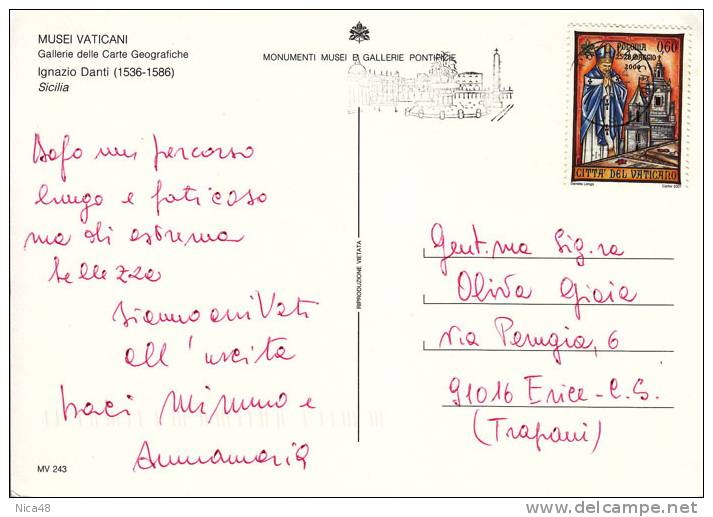 MUSEI VATICANI
Gallerie delle Carte Geografiche
Ignazio Danti (1536-1586)
Sicilia
MONUMENTI MUSEI E GALLERIE PONTIFICIE
POLONIA 0,60
25-28 MAGGIO
2006
CITTA' DEL VATICANO
Daniela Longo Cartor 2007
Dopo un percorso
lungo e faticoso
ma di estrema
bellezza
Siamo arrivati
all'uscita
baci Mimmo e
Annamaria
RIPRODUZIONE VIETATA
Gent.ma Sig.ra
Oliva Gioia
Via Perugia, 6
91016 Erice-C.S.
(Trapani)
MV 243
Nica48
www.delcampe.net